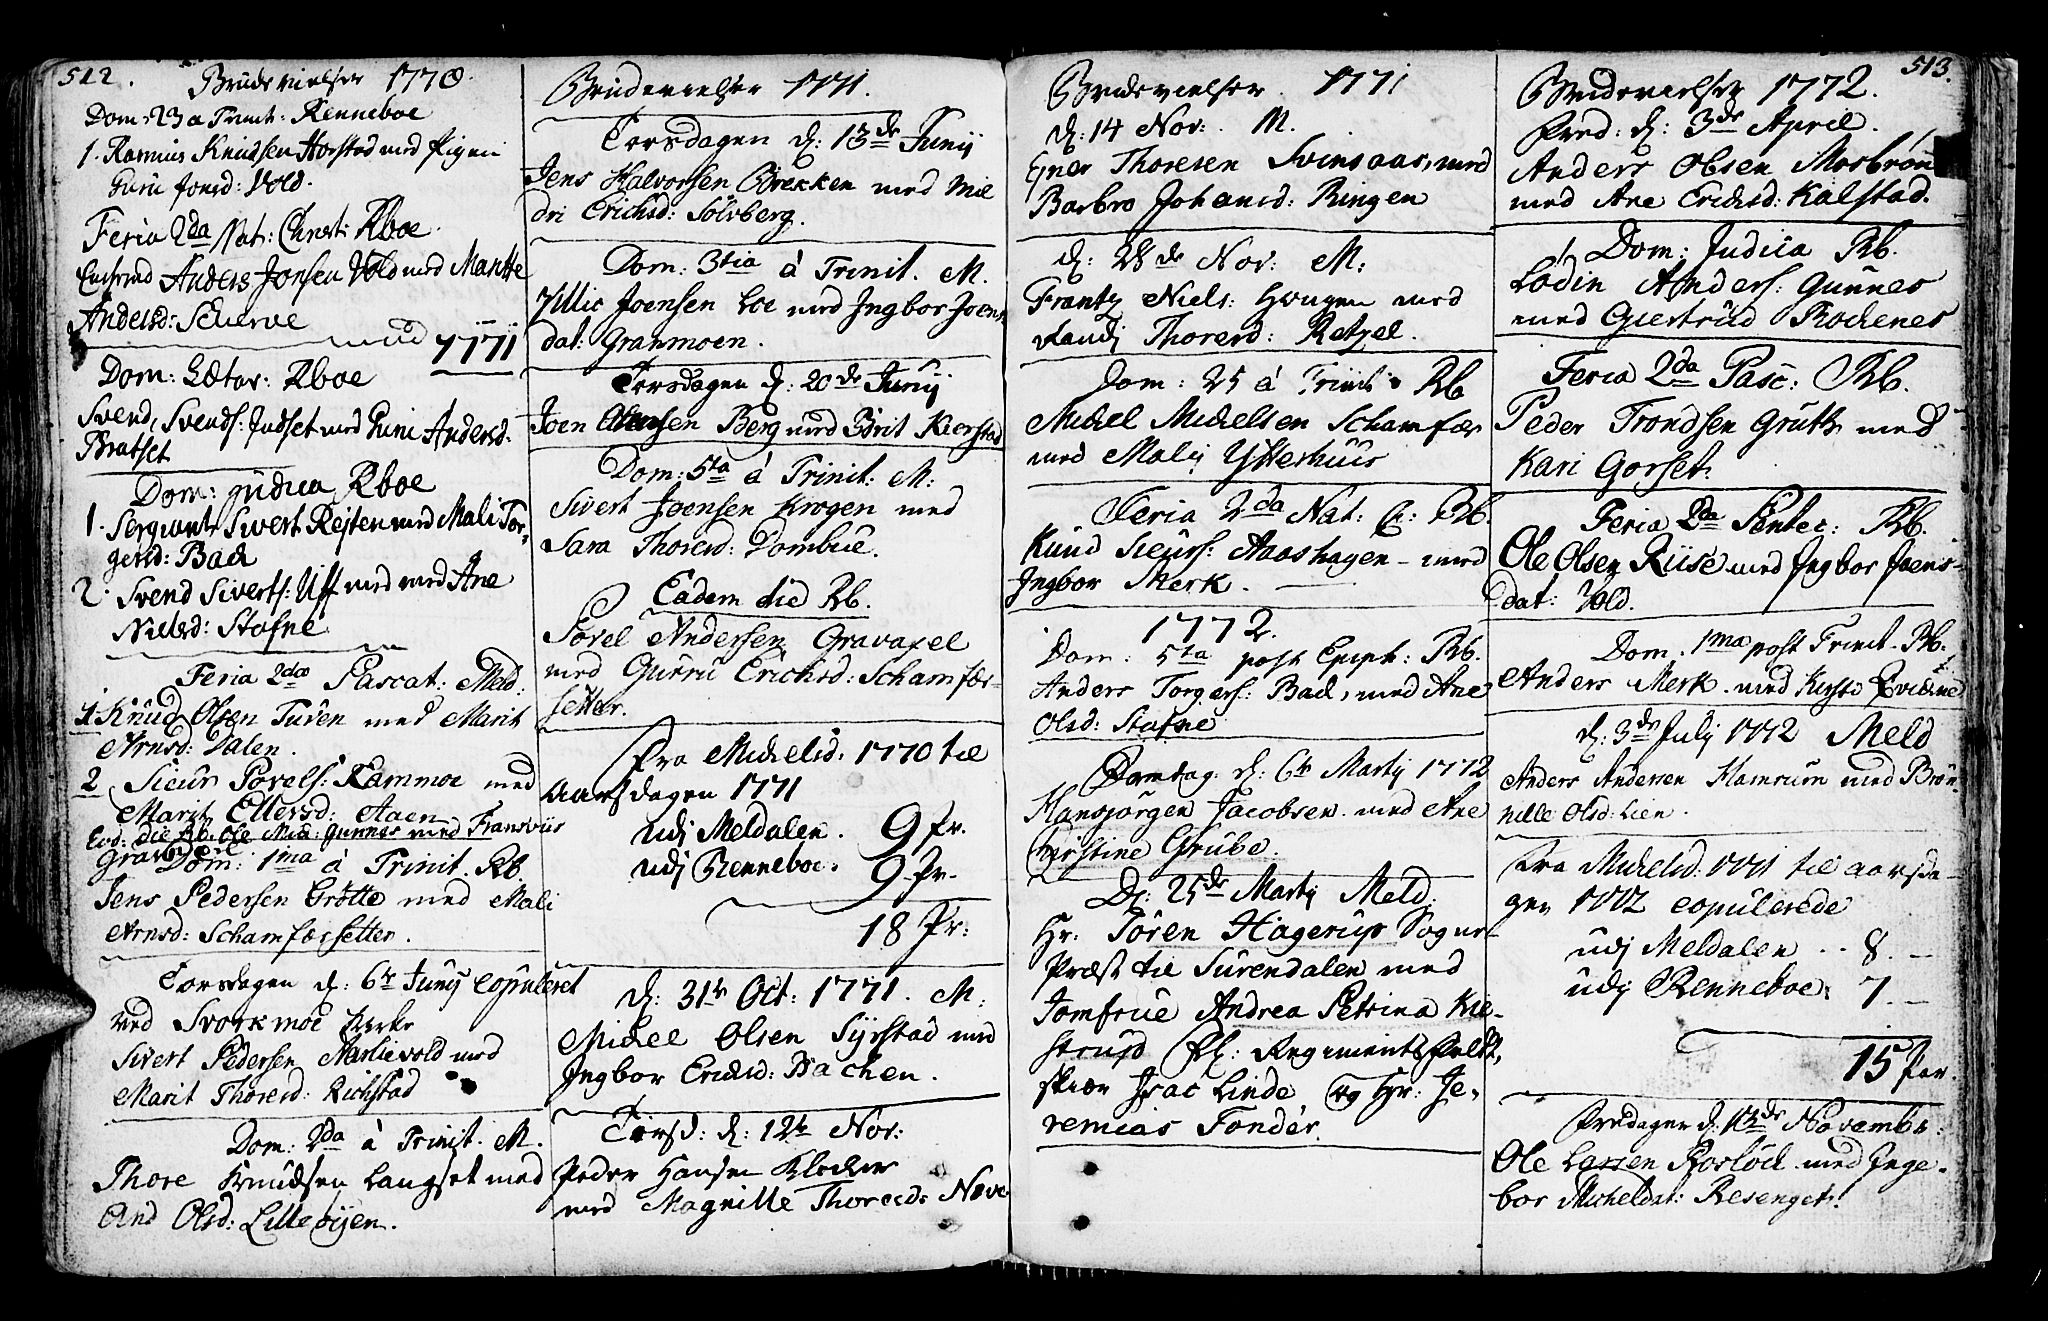 512.
Brudevielser 1770.
Dom: 23 a Trinit: Renneboe
1. Rasmus Knudsen Horstad med Pigen
Guru Jonsd: Vold.
Feria 2da Nat: Christ: Rboe.
Enkemand Anders Jonsen Vold med Marthe
Andersd: Scherve
1771
Dom: Lætar: Rboe
Svend Svends: Judset med Guru Andersd.
Bratset
Dom: Judica Rboe
1. Sergiant Sivert Rejten med Mali Tor-
gersd: Bach
2. Svend Siverts: Uff med med Ane
Nielsd: Stafne
Feria 2dæ Pascat: Meld:
1 Knud Olsen Turen med Marit
Arnsd: Dalen.
2 Siur Povels: Rammoe med
Marit Ellersd: Aaen
Eod: die Rb: Ole Mich: Gunnes med Fransviis
Grav
Dom: 1ma á Trinit. Rb.
Jens Pedersen Grötte med Mali
Arnsd: Schamfærsetter.
Torsdagen d: 6te Junij Copuleret
ved Svorkmoe Kirke
Sivert Pedersen Nerlievold med
Marit Thoresd: Kirkstad
Dom: 2da á Trinit. M.
Thore Knudsen Langset med
And Olsd: Lilleöyen.
Brudevielser 1771.
Torsdagen d: 13de Junij
Jens Halvorsen Brekken med Mil
dri Erichsd: Sölsberg.
Dom: 3tia á Trinit. M.
Yllie Joensen Loe med Ingbor Joens
dat: Granmoen.
Torsdagen d: 20de Junij
Joen Olensen Berg med Börit Kierstad
Dom: 5ta á Trinit: M:
Sivert Joensen Krogen med
Sara Thoresd: Dombue.
Eadem die Rb.
Povel Andersen Gravaxel
med Gurru Erichsd: Schamfær-
setter.
Fra Michelsd: 1770 til
Aarsdagen 1771
udj Meldalen. 9 Pr.
udj Renneboe. 9 Pr.
18 Pr:
d: 31te Oct: 1771. M:
Michel Olsen Syrstad med
Ingbor Erichsd: Bachen.
Torsd: d: 12te Nov:
Peder Hansen Klocker
med Magnille Thoresd: Næve
Brudevielser. 1771
d: 14 Nov: M.
Ener Thoresen Svinsaas, med
Barbro Johansd: Ringen
d: 28de Nov: M:
Frantz Niels: Hougen med
Randj Thoresd: Retzel.
Dom: 25 á Trinit: Rb
Michel Michelsen Schamfær
med Malij Ytterhuus
Feria 2da Nat: C: Rb.
Knud Siurs: Aashagen - med
Ingbor Merk.
1772.
Dom: 5ta post Epiph: Rb.
Anders Torgers: Bach, med Ane
Olsd: Stafne
d: 6te Martij 1772
Hansjörgen Jacobsen med Ane
Cirstine Grübe.
D: 25de Martij Meld:
Hr: Sören Hagerup Sogne-
Præst til Surendalen med
Jomfrue Andrea Petrina Kie-
strup Fl: Regiments Feldt-
skiær Isac Linde, og Hr: Je-
remias Fonder.
513.
Brudevielser 1772.
Fred: d: 3de April.
Anders Olsen Mosbrön
med Ane Erichsd: Kalstad.
Dom: Judica Rb.
Lodin Anders: Gunnes
med Giertrud Rochenes
Feria 2da Pasc: Rb.
Peder Trondsen Grutt med
Kari Gorset.
Feria 2da Pentec: Rb.
Ole Olsen Riise med Ingbor Joens-
dat: Vold.
Dom. 1ma post Trinit. Rb.
Anders Merk. med Kirsti Evidne
d: 3de Julij 1772 Meld
Anders Andersen Hamrum med Brön-
nille Olsd: Lien.
Fra Michelsd: 1771 til aarsda-
gen 1772 copulerede
udj Meldalen .. 8. -
udj Renneboe: 7. -
15 Par.
Fredagen d: 13de Novembr:
Ole Larsen Roslöck med Inge-
bor Micheldat: Resenget.